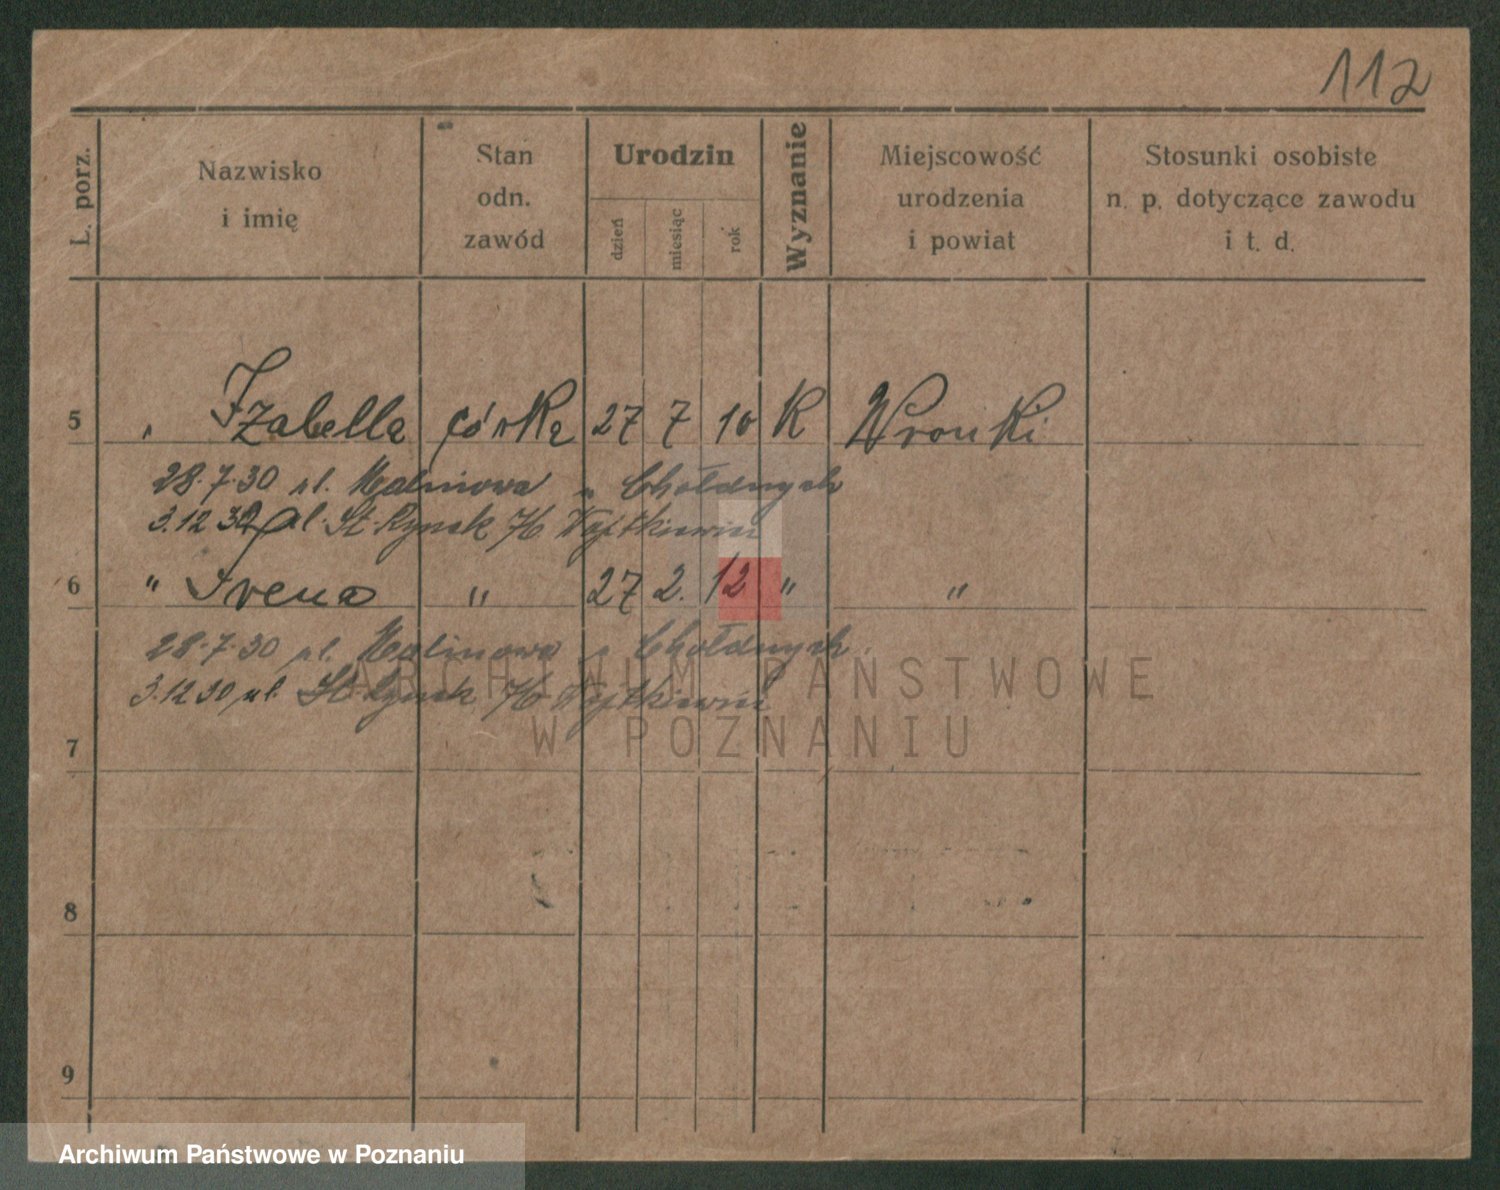 112
L. porz.
Nazwisko
i imię
Stan
odn.
zawód
Urodzin
dzień
miesiąc
rok
Wyznanie
Miejscowość
urodzenia
i powiat
Stosunki osobiste
n. p. dotyczące zawodu
i t. d.
5 " Izabella córka 27 7 10 K Wronki
28.7.30 ul. Malinowa
3.12 30 ul. St. Rynek
6 " Irena " 27 2. 12 " "
28.7.30 ul. Malinowa
3.12 30 ul. St. Rynek
7
8
9
ARCHIWUM PAŃSTWOWE
W POZNANIU
Archiwum Państwowe w Poznaniu